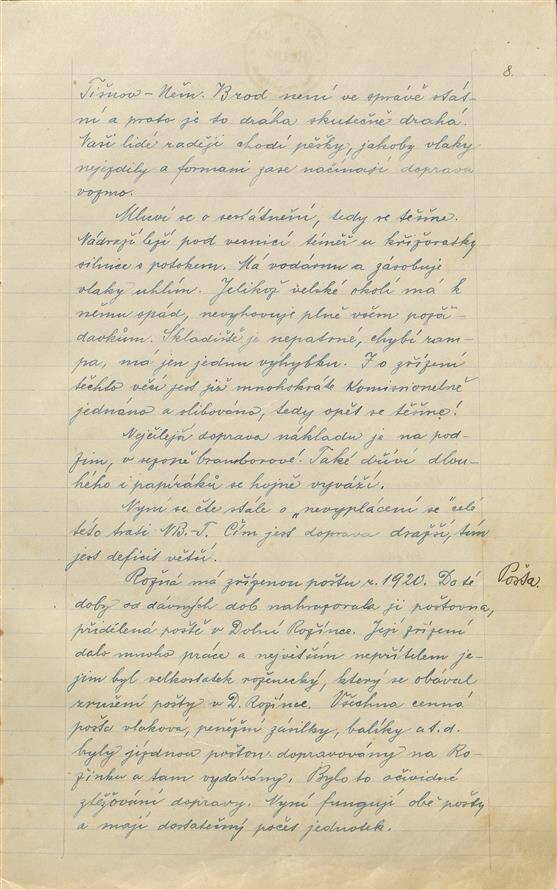 8.
Tišnov – Něm. Brod není ve správě stát-
ní a proto je to dráha skutečně drahá.
Naši lidé raději chodí pěšky, jakoby vlaky
nejezdily a formani zase načínají doprava
vozmo.
Mluví se o sestátnění, tedy se těšme.
Nádraží leží pod vesnicí téměř u křižovatky
silnice s potokem. Má vodárnu a zásobuje
vlaky uhlím. Jelikož veliké okolí má k
němu spád, nevyhovuje plně všem požá-
davkům. Skladiště je nepatrné, chybí ram-
pa, má jen jednu výhybku. I o zřízení
těchto věcí jest již mnohokráte komisionelně
jednáno a slibováno, tedy opět se těšme!
Nejčilejší doprava nákladu je na pod-
zim, v sezoně bramborové! Také dříví dlou-
hého i papíráků se hojně vyváží.
Nyní se čte stále o „nevyplácení se" celé
této trati NB.-T. Čím jest doprava dražší, tím
jest deficit větší.
Rožná má zřízenou poštu r. 1920. Do té
Pošta.
doby od dávných dob nahrazovala ji poštovna,
přidělená poště v Dolní Rožínce. Její zřízení
dalo mnoho práce a největším nepřítelem je-
jím byl velkostatek rožínecký, který se obával
zrušení pošty v D. Rožínce. Všechna cenná
pošta vlaková, peněžní zásilky, balíky a t. d.
byly jízdnou poštou dopravovány na Ro-
žínku a tam vydávány. Bylo to očividné
ztěžování dopravy. Nyní fungují obě pošty
a mají dostatečný počet jednotek.